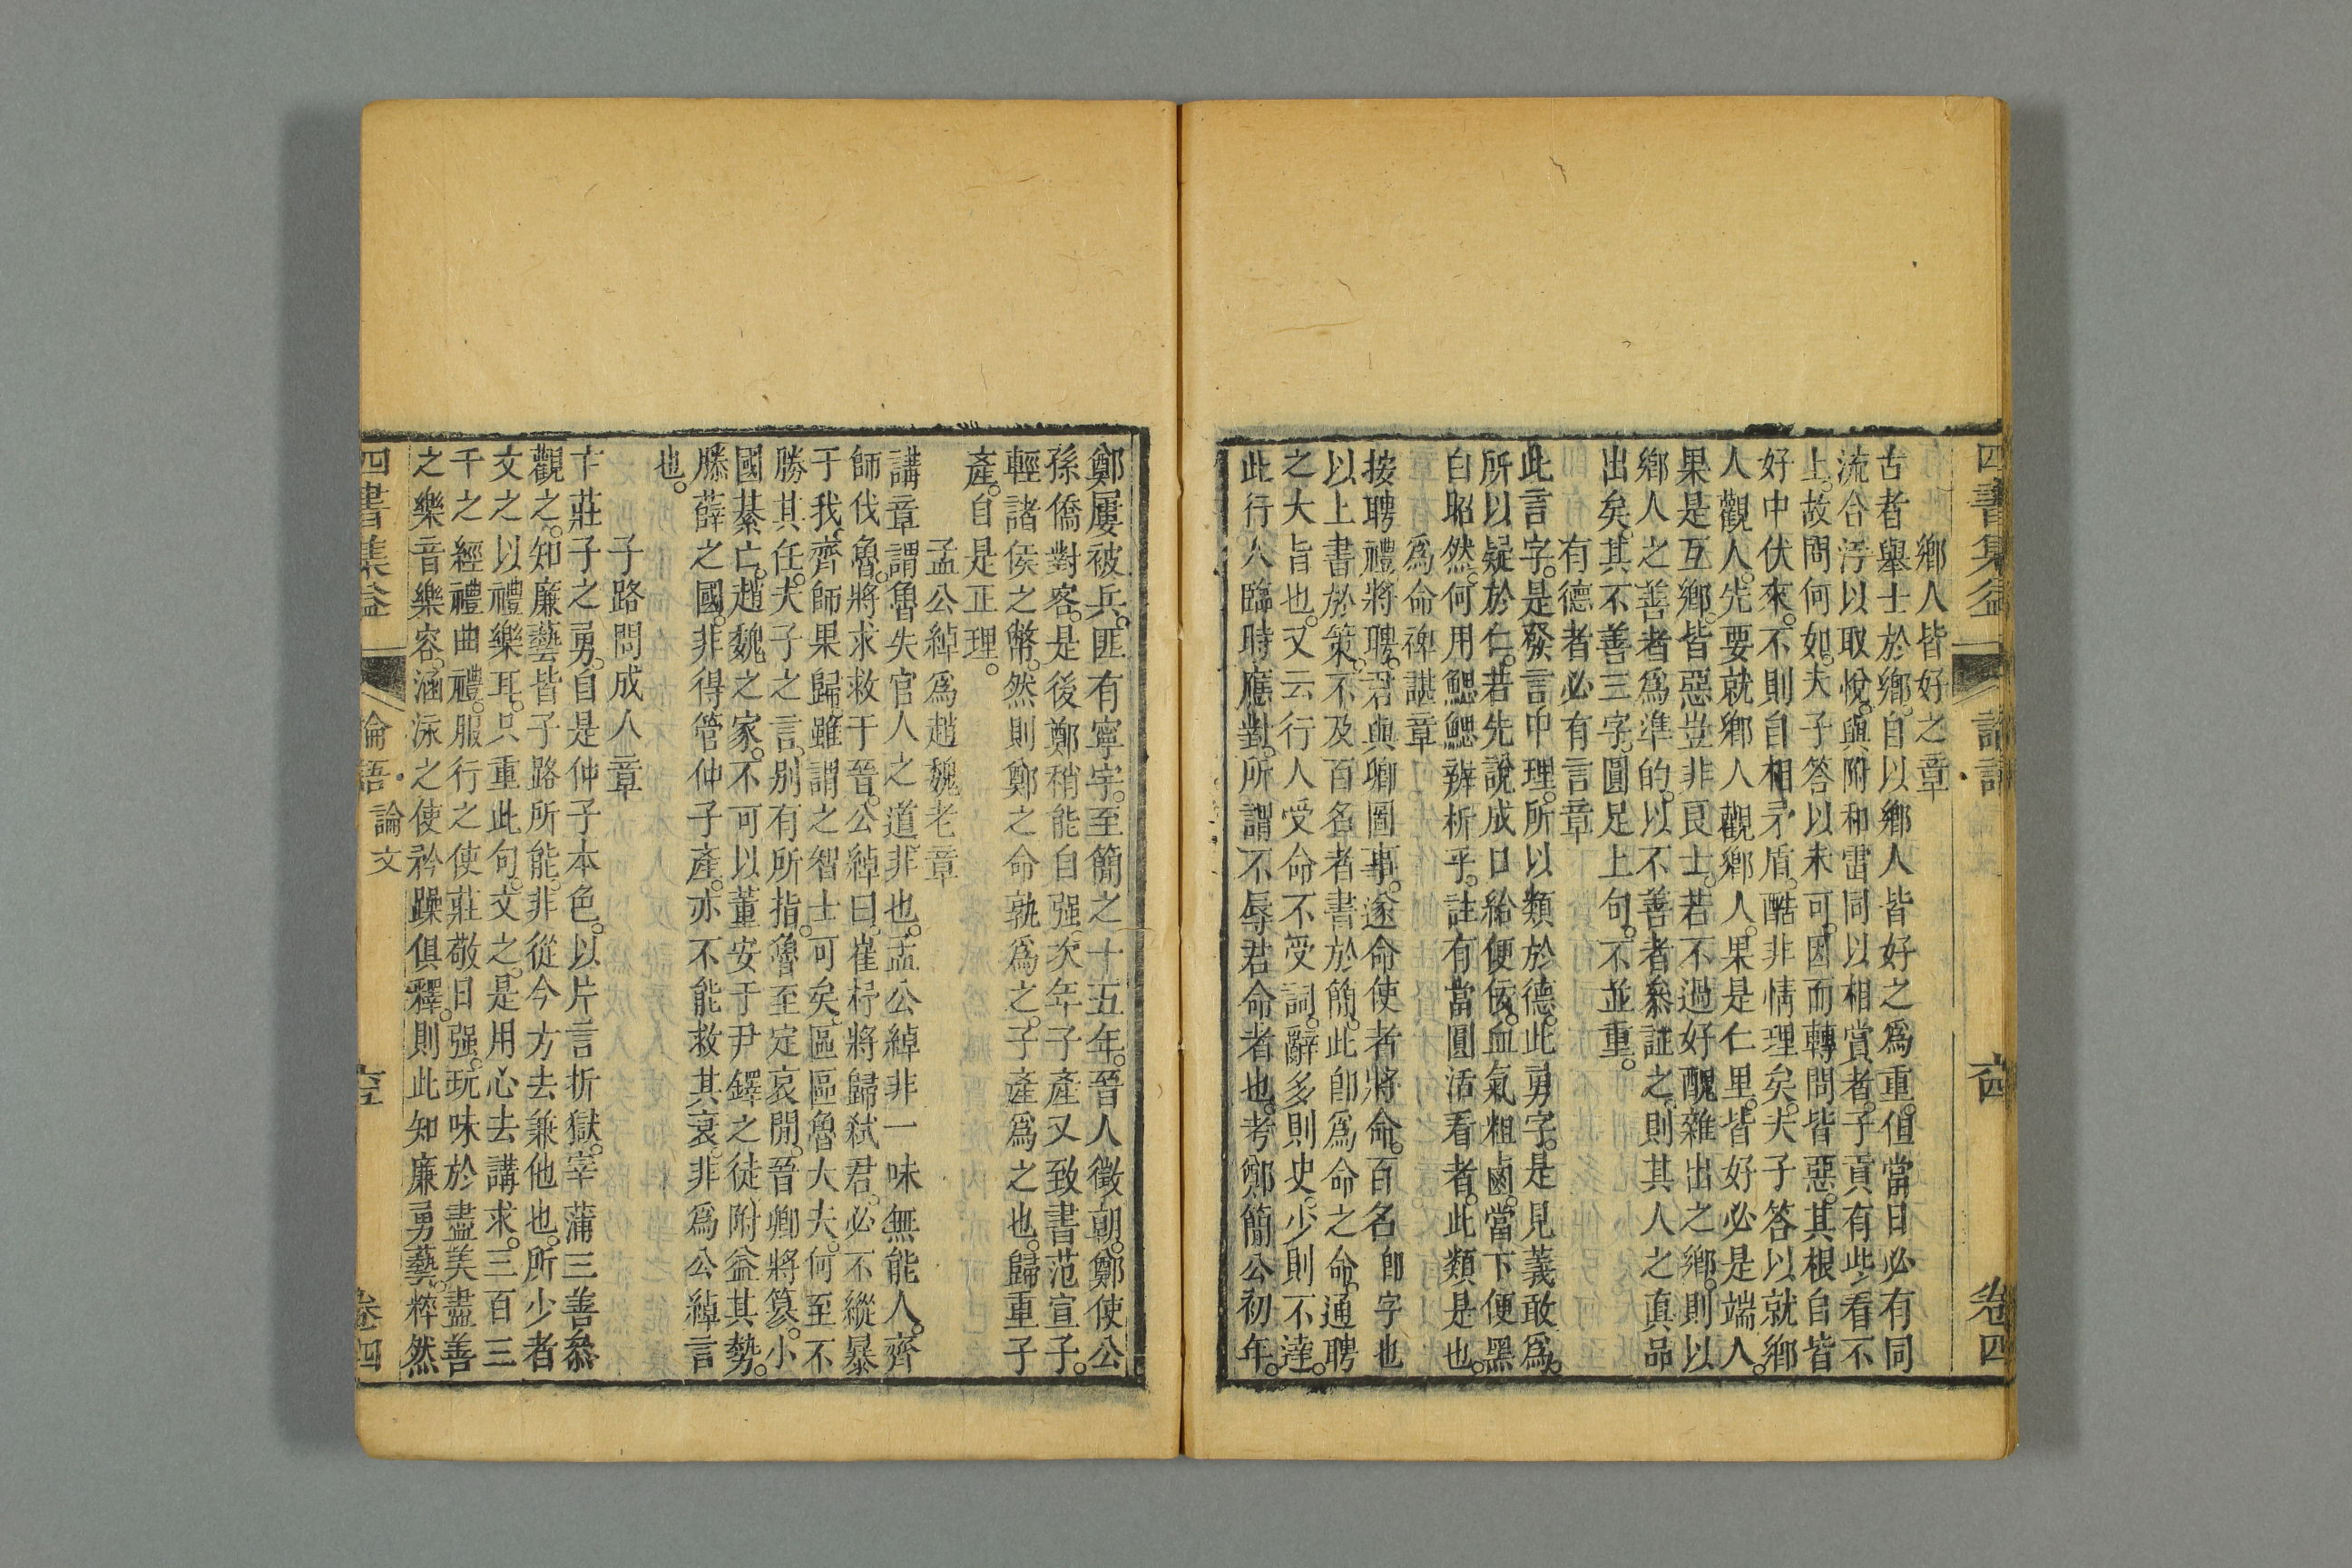 四書集益 論語 卷四
鄉人皆好之章
古者舉士於鄉。自以鄉人皆好之爲重。但當日必有同
流合汚以取悅。與附和雷同以相賞者。子貢有些看不
上。故問何如。夫子答以未可。因而轉問皆惡。其根自皆
好中伏來。不則自相矛盾。酷非情理矣。夫子答以就鄉
人觀人。先要就鄉人觀鄉人。果是仁里。皆好必是端人。
果是互鄉。皆惡豈非良士。若不過好醜雜出之鄉。則以
鄉人之善者爲準的。以不善者叅証之。則其人之眞品
出矣。其不善三字。圓足上句。不並重。
有德者必有言章
此言字。是發言中理。所以類於德。此勇字。是見義敢爲。
所以疑於仁。若先說成口給便佞。血氣粗鹵。當下便黑
白昭然。何用鰓鰓辨析乎。註有當圓活看者。此類是也。
爲命裨諶章
按聘禮將聘。君與卿圖事。遂命使者將命。百名卽字也
以上書於策。不及百名者書於簡。此卽爲命之命。通聘
之大旨也。又云行人受命不受詞。辭多則史。少則不達。
此行人臨時應對。所謂不辱君命者也。考鄭簡公初年。
鄭屢被兵。匪有寧宇。至簡之十五年。晉人徵朝。鄭使公
孫僑對客。是後鄭稍能自强。次年子產又致書范宣子。
輕諸侯之幣。然則鄭之命孰爲之。子產爲之也。歸重子
產。自是正理。
孟公綽爲趙魏老章
講章謂魯失官人之道。非也。孟公綽非一味無能人。齊
師伐魯。將求救于晉。公綽曰。崔杼將歸弒君。必不縱暴
于我。齊師果歸。雖謂之智士可矣。區區魯大夫。何至不
勝其任。夫子之言。別有所指。魯至定哀閒。晉卿將簒。小
國棊亡。趙魏之家。不可以董安于尹鐸之徒。附益其勢。
滕薛之國。非得管仲子產。亦不能救其衰。非爲公綽言
也。
子路問成人章
卞莊子之勇。自是仲子本色。以片言折獄。宰蒲三善叅
觀之。知廉藝皆子路所能。非從今方去兼他也。所少者
文之以禮樂耳。只重此句。文之。是用心去講求。三百三
千之經禮曲禮。服行之使莊敬日强。玩味於盡美盡善
之樂音樂容。涵泳之使矜躁俱釋。則此知廉勇藝。粹然
四書集益 論語 論文 卷四